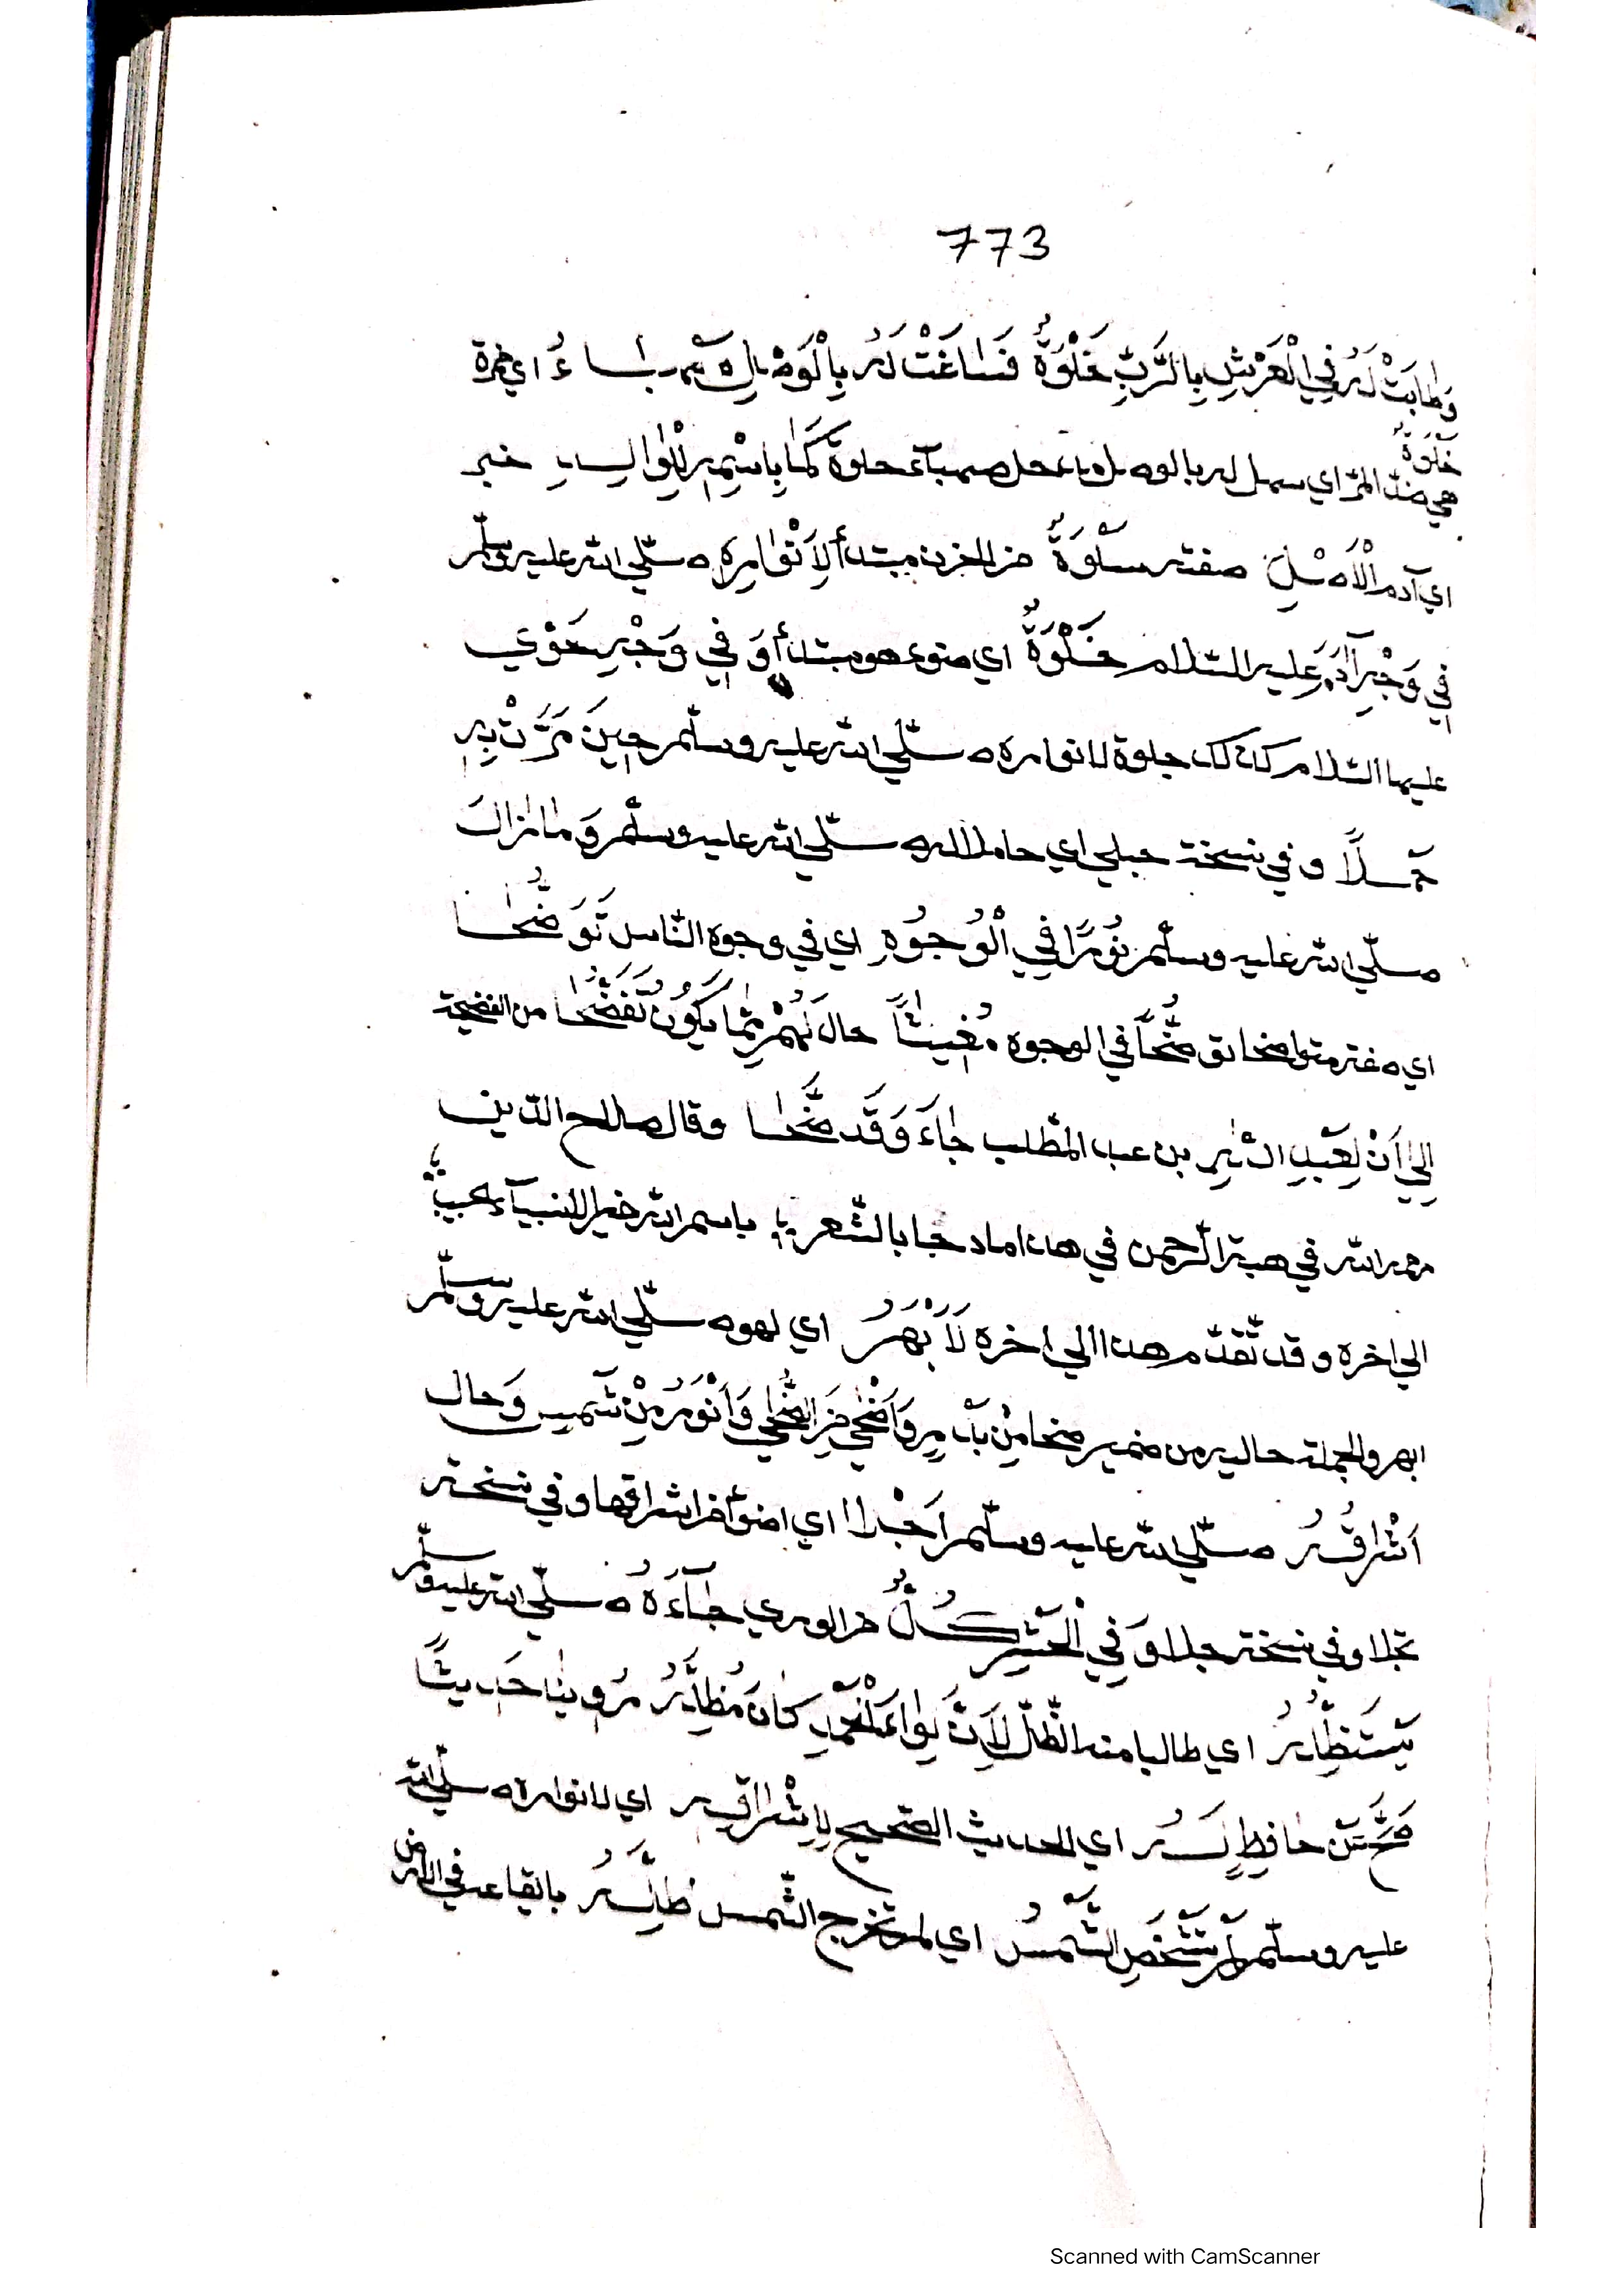 773
وَطَابَتْ لَهُ فِي الْعَرْشِ بِالرَّبِّ خَلْوَةٌ فَسَاغَتْ لَهُ بِالْوَصْلِ صهباءُ اي خمرة
حَلْوَةٌ
هي ضدّ المرّ اي سهل له بالوصل صهبآء حلوة كَمَا بِاسْمِهِ لِلْوَالِدِ خبر
اي آدم الْأَصْلِ صفته سَلْوَةٌ من الحزن مبتدأ لِأَنْوَارِهِ صلّي الله عليه وسلّم
فِي وَجْهِ آدَمَ عليه السّلام جَلْوَةٌ اي ضوء هو مبتدأ وَفِي وَجْهِ حَوْي
عليها السّلام كذلك جلوة لانواره صلّي الله عليه وسلّم حِينَ مَرَّتْ بِهِ
حَمْلًا و في نسخة حبلي اي حاملا له صلّي الله عليه وسلّم وَمَا زَالَ
صلّي الله عليه وسلّم نُورًا فِي الْوُجُوهِ اي في وجوه النّاس تَوَضَّحَا
اي صفته متواضحا توضّحاً في الوجوه مُغِيثًا حال لَهُمْ مِمَّا يَكُونُ تَفَضُّحَا من الفضيحة
إِلَي أَنْ لِعَبْدِ اللهِ بن عبد المطّلب جَاءَ وَقَدْ ضَحَا وقال صالح الدّين
رحمه الله في هبة الرّحمن في هذا ما دجا بالشّعر يا باسم الله خير الانبيآء حبيب
الي اخره و قد تقدّم هذا الي اخره لَأَبْهَرُ اي لهو صلّي الله عليه وسلّم
ابهر والجملة حاليه من ضمير ضحا مِنْ بَدْرٍ وَأَضْحَي مِنَ الضُّحَي وَأَنْوَرُ مِنْ شَمْسٍ وَحَال
أَشْرَاقُهُ صلّي الله عليه وسلّم أَجْلَا اي اضوأ من اشراقها و في نسخة
تجلا و في نسخة جلا وَفِي الْحَشْرِ كُلٌّ من الوري جَآءَهُ صلّي الله عليه وسلّم
يَسْتَظِلُّهُ اي طالبا منه الظّلّ لِأَنَّ لِوَاءَ الْحَمْدِ كَانَ مُظِلَّهُ رُوِينَا حَدِيثًا
صَحَّ عَنْ حَافِظٍ لَهُ اي الحديث الصّحيح لِإِشْرَاقِهِ اي لانواره صلّي الله
عليه وسلّم لَمْ تَشْخَصِ الشَّمْسُ اي لم تخرج الشّمس ظِلَّهُ بايقاعه في الارض
Scanned with CamScanner